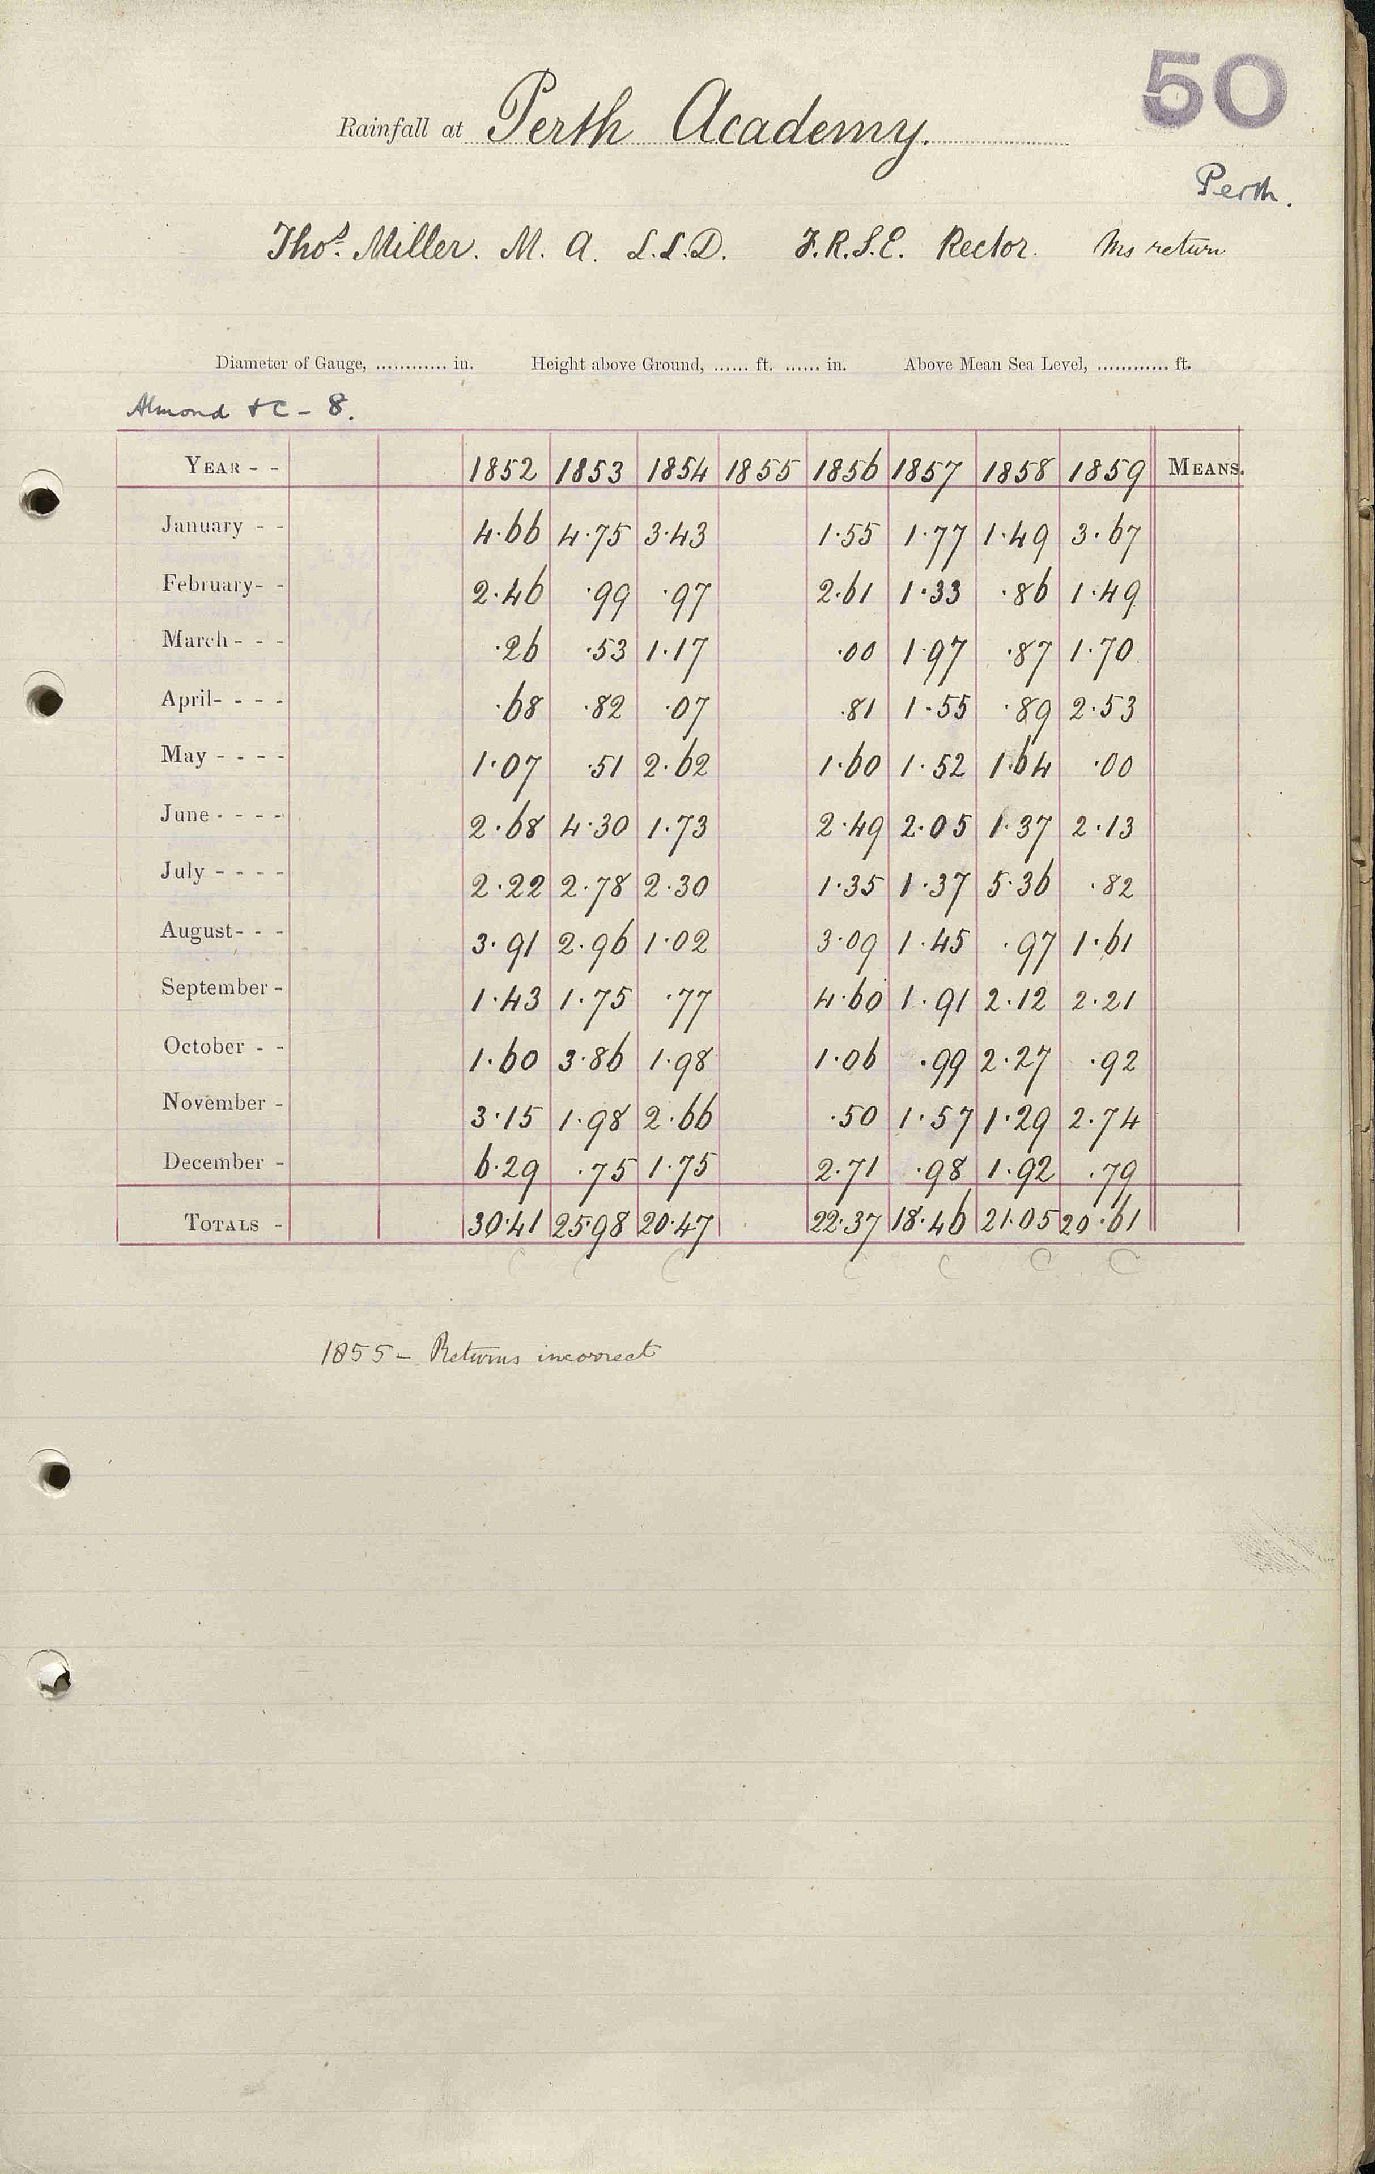 50
Rainfall at Perth Academy.
Perth.
Thos. Miller. M. A. L.L.D. F.R.S.E. Rector. Ms return
Diameter of Gauge, ............ in. Height above Ground, ...... ft. ...... in. Above Mean Sea Level, ............ ft.
Almond &c - 8.
YEAR - - 1852 1853 1854 1855 1856 1857 1858 1859 MEANS.
January - - 4.66 4.75 3.43 1.55 1.77 1.49 3.67
February- - 2.46 .99 .97 2.61 1.33 .86 1.49
March - - - .26 .53 1.17 .00 1.97 .87 1.70
April- - - - .68 .82 .07 .81 1.55 .89 2.53
May - - - - 1.07 .51 2.62 1.60 1.52 1.64 .00
June - - - - 2.68 4.30 1.73 2.49 2.05 1.37 2.13
July - - - - 2.22 2.78 2.30 1.35 1.37 5.36 .82
August- - - 3.91 2.96 1.02 3.09 1.45 .97 1.61
September - 1.43 1.75 .77 4.60 1.91 2.12 2.21
October - - 1.60 3.86 1.98 1.06 .99 2.27 .92
November - 3.15 1.98 2.66 .50 1.57 1.29 2.74
December - 6.29 .75 1.75 2.71 .98 1.92 .79
TOTALS - 30.41 25.98 20.47 22.37 18.46 21.05 20.61
C C C C C C C
1855 - Returns incorrect